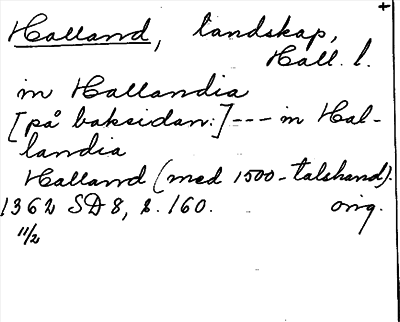 +
Halland, landskap,
Hall. l.
in Hallandia
[på baksidan:] --- in Hal-
landia
Halland (med 1500-talshand).
1362 SD 8, s. 160. orig.
11/2